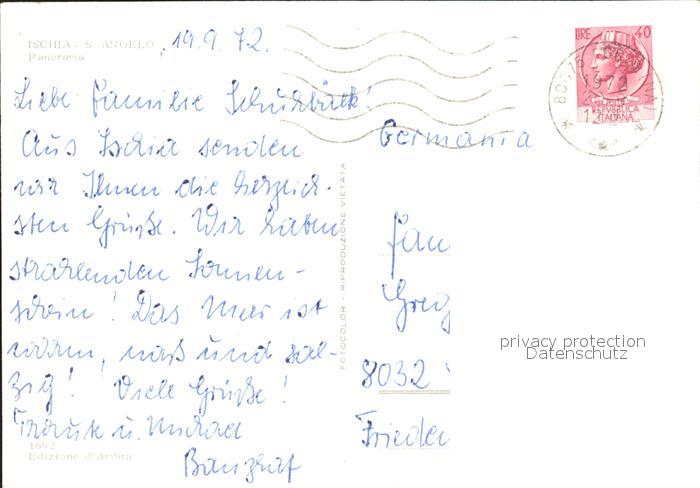 ISCHIA - S. ANGELO
Panorama
19.9.72.
Liebe Familie
Aus Ischia senden
wir Ihnen die herzlich-
sten Grüße. Wir haben
strahlenden Sonnen-
schein! Das Meer ist
warm, naß und sal-
zig! Viele Grüße!
Traute u. Michael
Banzhaf
1692
Edizione d'Ambra
FOTOCOLOR - RIPRODUZIONE VIETATA
LIRE 40
REPVBBLICA
ITALIANA
Germania
Fam
Greg
8032
Frieden
privacy protection
Datenschutz